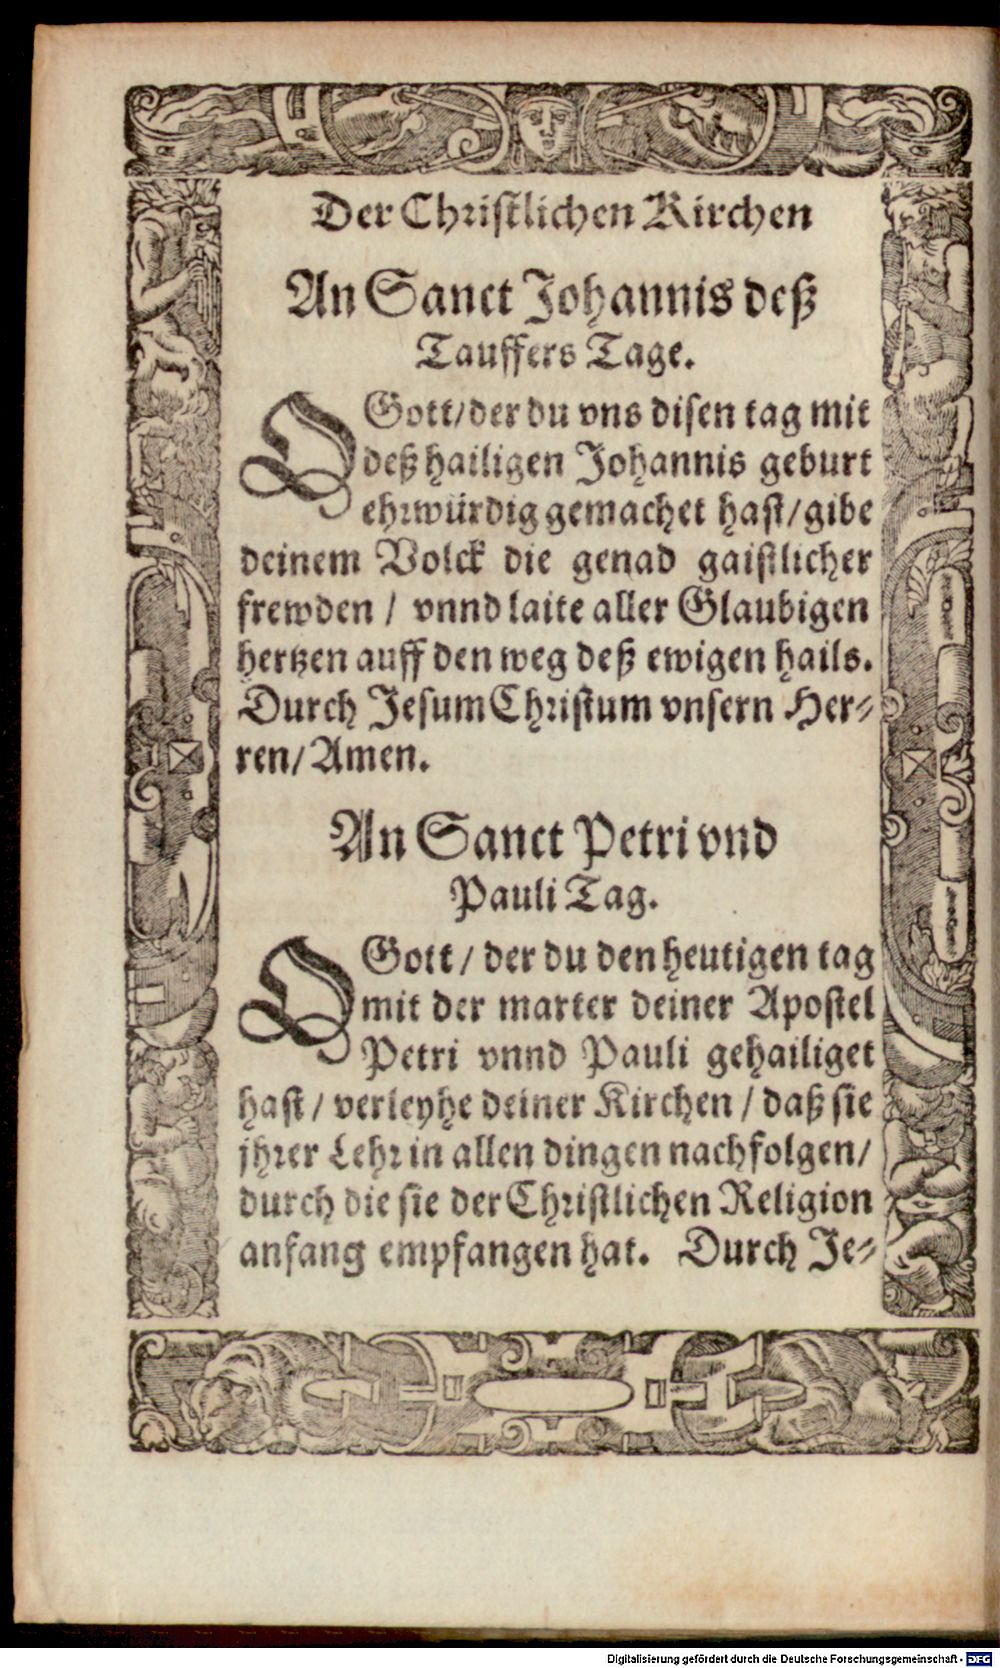 Der Christlichen Kirchen
An Sanct Johannis deß
Tauffers Tage.
O Gott/ der du vns disen tag mit
deß hailigen Johannis geburt
ehrwürdig gemachet hast/ gibe
deinem Volck die genad gaistlicher
frewden / vnnd laite aller Glaubigen
hertzen auff den weg deß ewigen hails.
Durch Jesum Christum vnsern Her⸗
ren/ Amen.
An Sanct Petri vnd
Pauli Tag.
O Gott / der du den heutigen tag
mit der marter deiner Apostel
Petri vnnd Pauli gehailiget
hast / verleyhe deiner Kirchen / daß sie
jhrer Lehr in allen dingen nachfolgen/
durch die sie der Christlichen Religion
anfang empfangen hat. Durch Je⸗
Digitalisierung gefördert durch die Deutsche Forschungsgemeinschaft - DFG